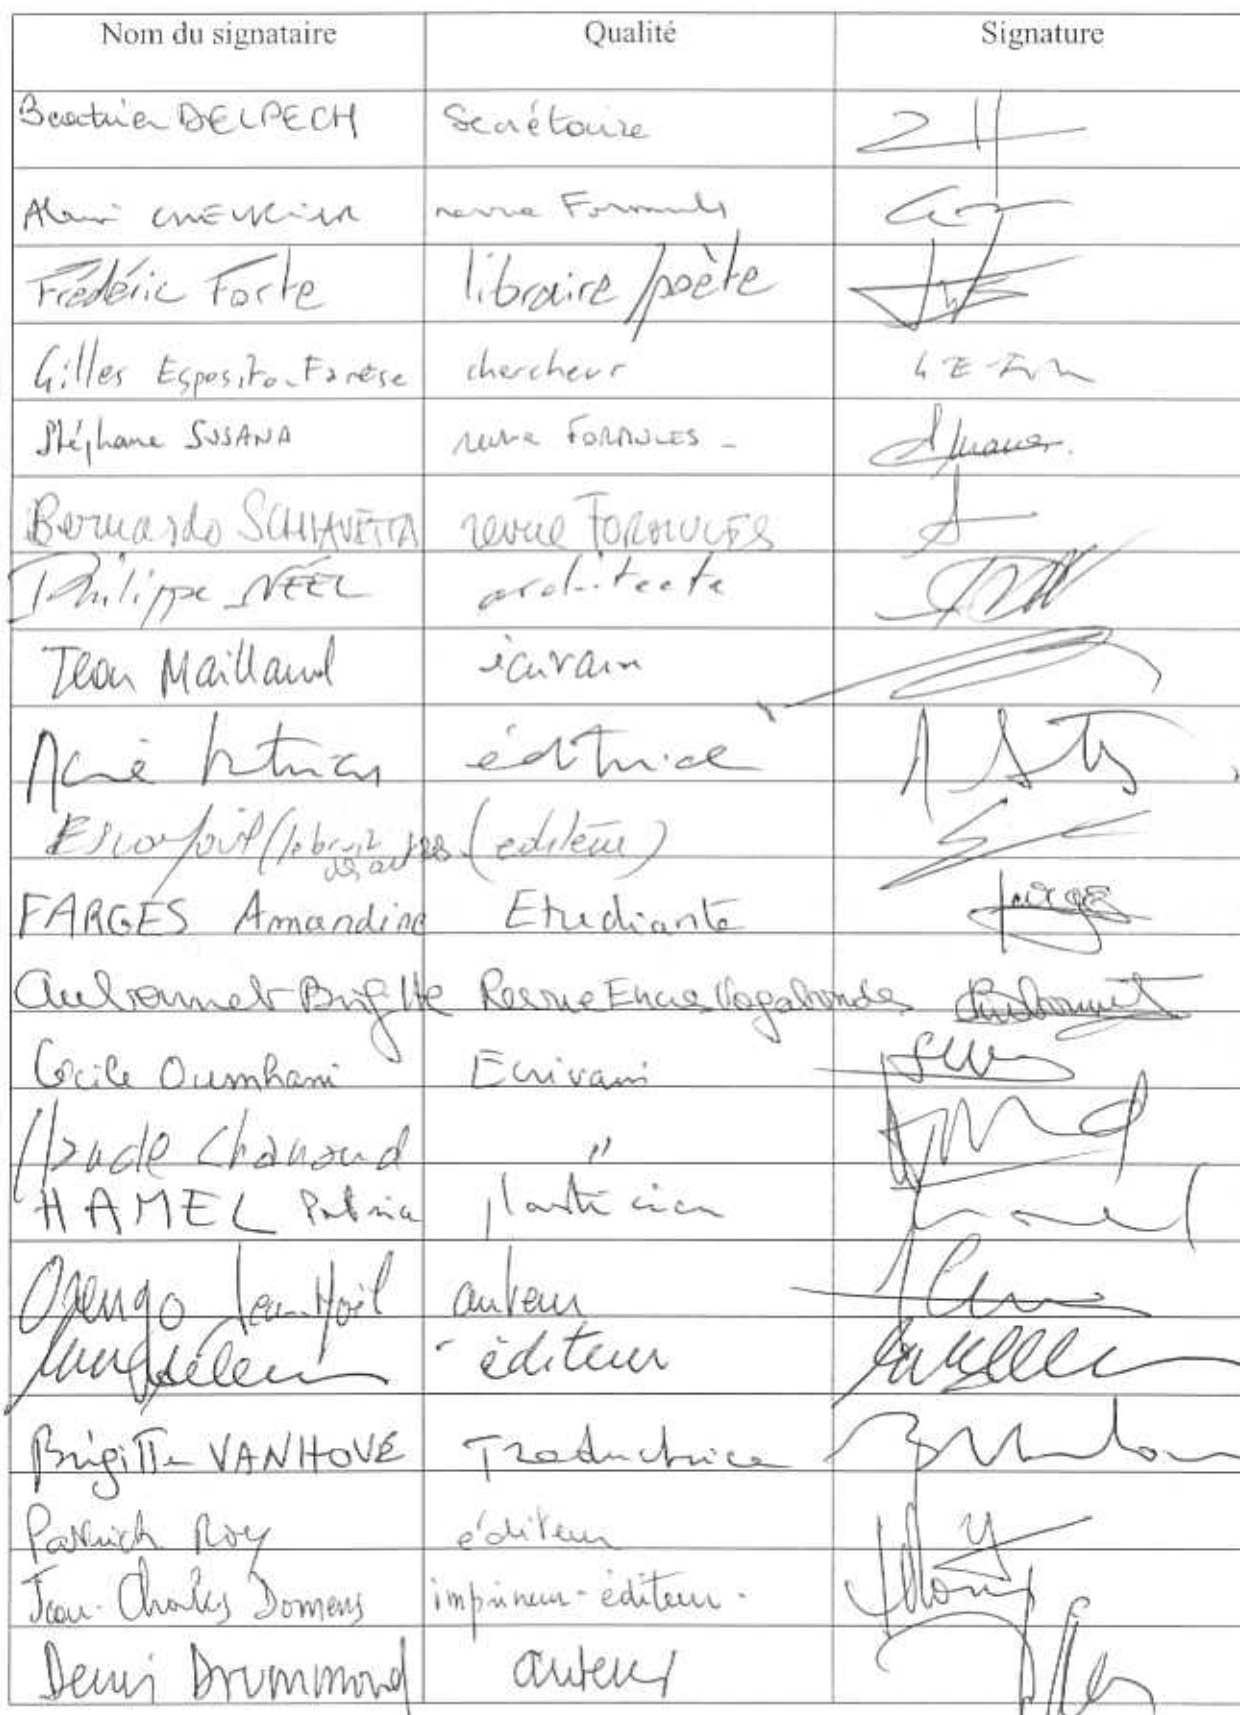 Nom du signataire Qualité Signature
Beatrice DELPECH Secrétaire
Alain CHEVRIER revue Formules
Frédéric Forte libraire/poète
Gilles Esposito-Farèse chercheur G E-F
Stéphane SUSANA revue FORMULES -
Bernardo SCHIAVETTA revue FORMULES
Philippe NÉEL architecte
Jean Maillaud écrivain
éditrice
(le bruit (editeur)
des autres
FARGES Amandine Etudiante Farges
Aubonnet Brigitte Revue Encres Vagabondes Aubonnet
Cécile Oumhani Ecrivain
Claude Chanaud "
HAMEL Patricia plasticien
Orengo Jean-Noël auteur
éditeur
Brigitte VANHOVE Traductrice
Patrick Roy éditeur
Jean-Charles Domens imprimeur-éditeur-
Denis Drummond auteur